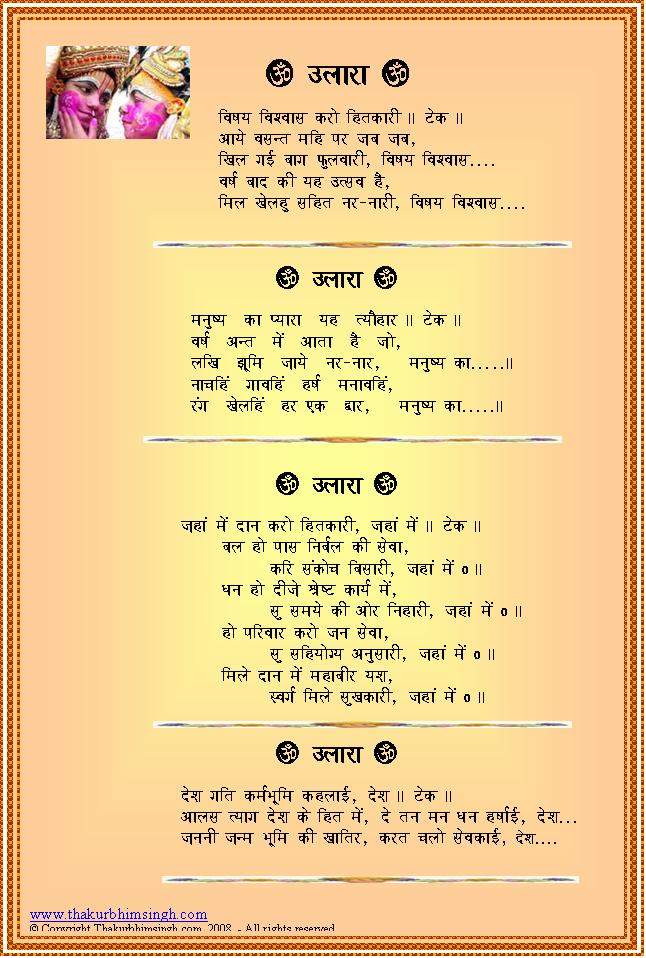 ॐ उलारा ॐ
विषय विश्वास करो हितकारी ॥ टेक ॥
आये वसन्त महि पर जब जब,
खिल गई बाग फुलवारी, विषय विश्वास....
वर्ष बाद की यह उत्सव है,
मिल खेलहु सहित नर-नारी, विषय विश्वास....
ॐ उलारा ॐ
मनुष्य का प्यारा यह त्यौहार ॥ टेक ॥
वर्ष अन्त में आता है जो,
लखि झूमि जाये नर-नार, मनुष्य का.....॥
नाचहिं गावहिं हर्ष मनावहिं,
रंग खेलहिं हर एक द्वार, मनुष्य का.....॥
ॐ उलारा ॐ
जहां में दान करो हितकारी, जहां में ॥ टेक ॥
बल हो पास निर्बल की सेवा,
करि संकोच बिसारी, जहां में ० ॥
धन हो दीजे श्रेष्ट कार्य में,
सु समये की ओर निहारी, जहां में ० ॥
हो परिवार करो जन सेवा,
सु सहियोग्य अनुसारी, जहां में ० ॥
मिले दान में महाबीर यश,
स्वर्ग मिले सुखकारी, जहां में ० ॥
ॐ उलारा ॐ
देश गति कर्मभूमि कहलाई, देश ॥ टेक ॥
आलस त्याग देश के हित में, दे तन मन धन हर्षाई, देश...
जननी जन्म भूमि की खातिर, करत चलो सेवकाई, देश....
www.thakurbhimsingh.com
© Copyright Thakurbhimsingh.com 2008 - All rights reserved